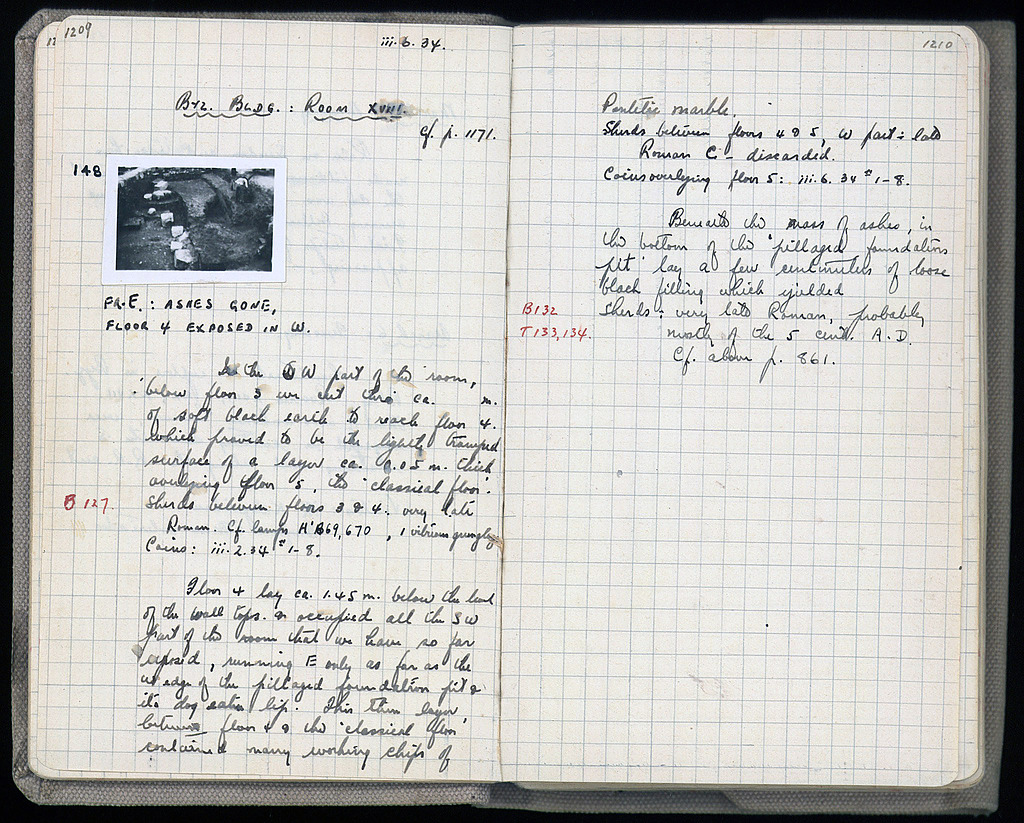 1209
iii.6.34.
Byz. Bldg.: Room XVIII.
cf. p. 1171.
148
FR.E.: ASHES GONE,
FLOOR 4 EXPOSED IN W.
In the SW part of the room,
below floor 3 we cut thro' ca. m.
of soft black earth to reach floor 4.
which proved to be the lightly tramped
surface of a layer ca. 0.05 m. thick
overlying floor 5, the 'classical floor'.
B 127.
Sherds between floors 3 & 4: very late
Roman. Cf. lamps 69, 670, 1
Coins: iii.2.34 #1-8.
Floor 4 lay ca. 1.45 m. below the level
of the wall tops. & occupied all the SW
part of the room that we have so far
exposed, running E only as far as the
W edge of the pillaged foundation pit &
its dog eaten lip. This thin layer,
between floor 4 & the 'classical floor'
contained many working chips of
1210
Pentelic marble.
Sherds between floors 4 & 5, W part: late
Roman C - discarded.
Coins overlying floor 5: iii.6.34 #1-8.
Beneath the mass of ashes, in
the bottom of the 'pillaged foundation
pit' lay a few centimeters of loose
black filling which yielded
B132
T133,134.
Sherds: very late Roman, probably
mostly of the 5 cent. A.D.
Cf. above p. 861.